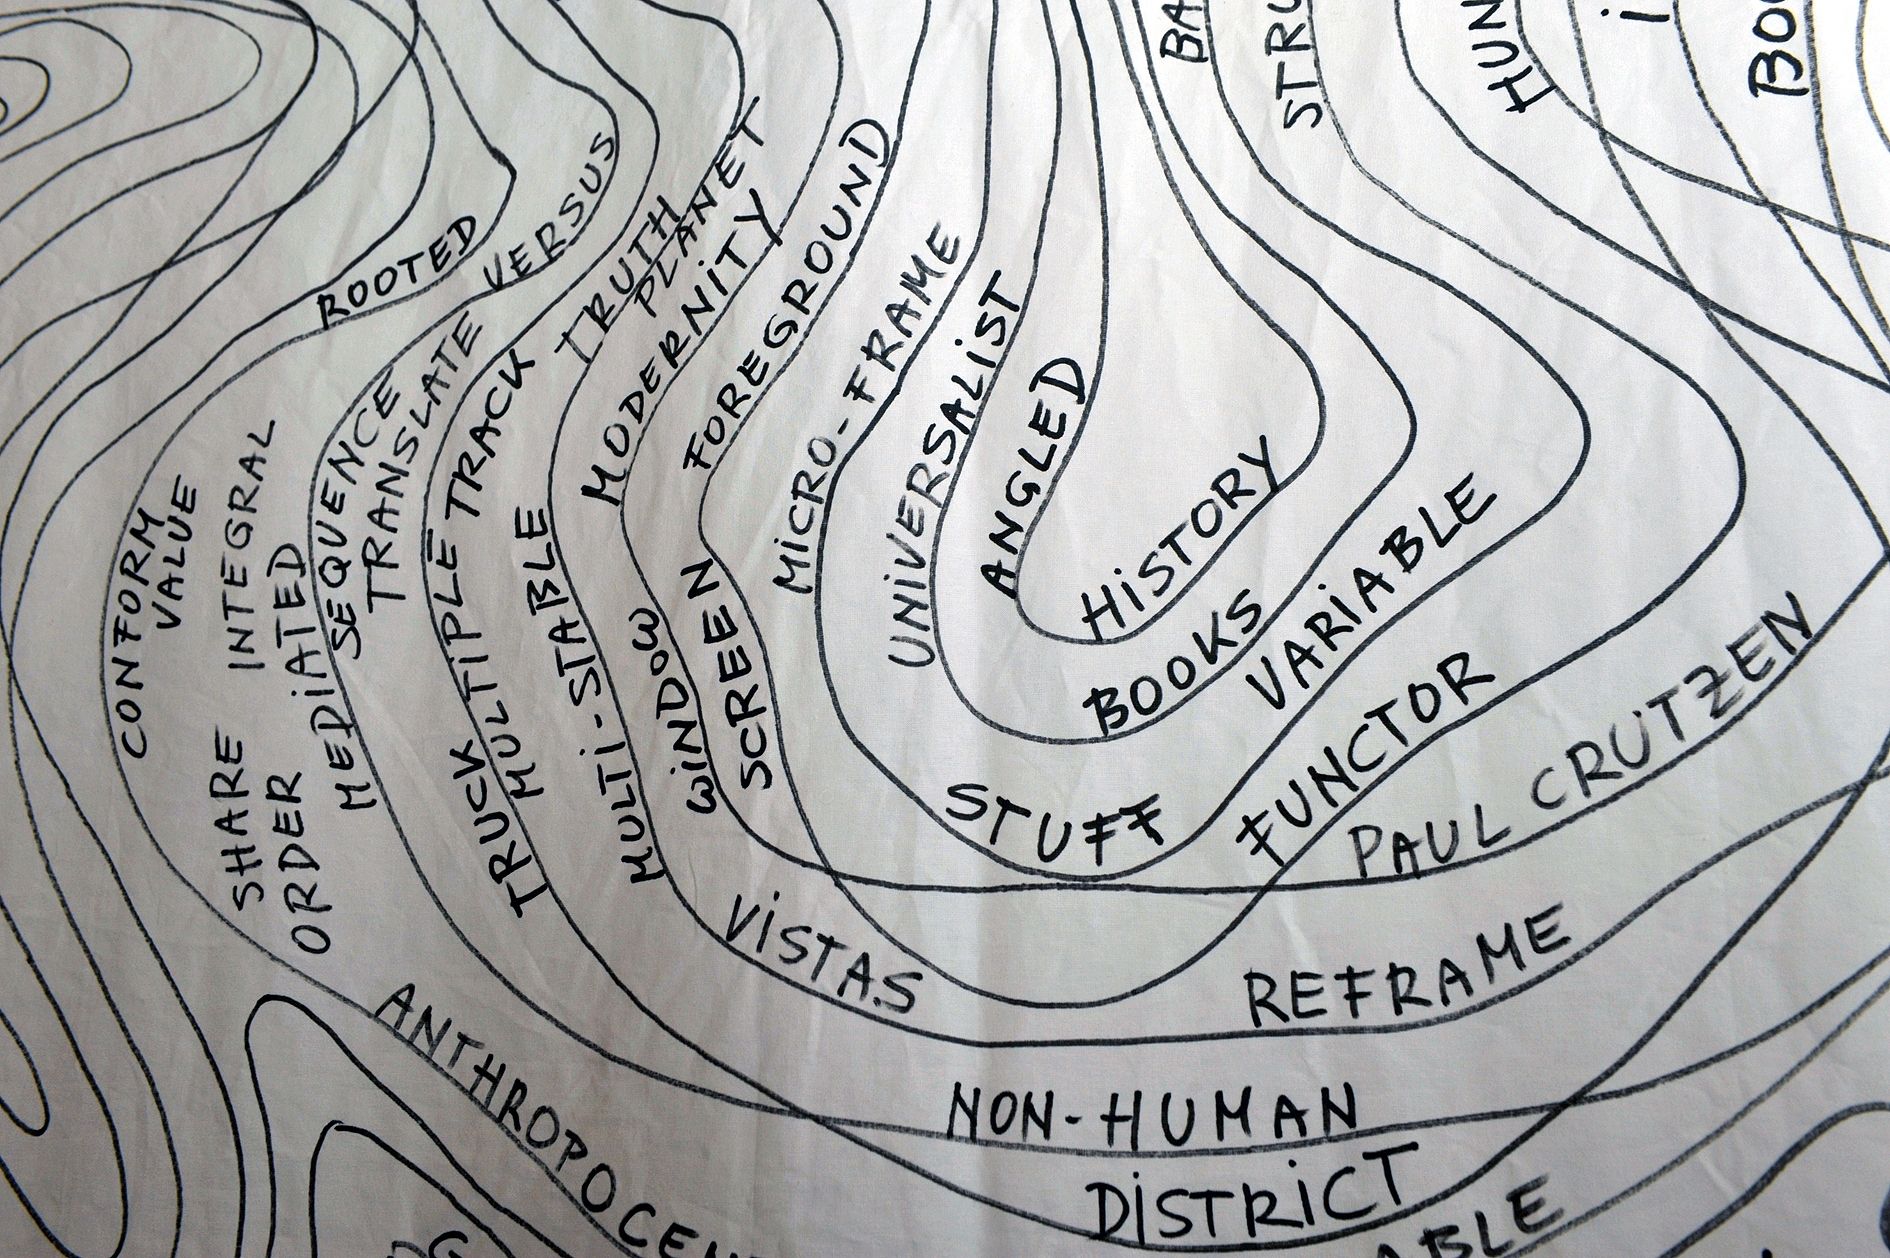 ROOTED
VERSUS
TRUTH
PLANET
MODERNITY
FOREGROUND
MiCRO-FRAME
UNiVERSALiST
ANGLED
HiSTORY
BOOKS
VARiABLE
STUFF
FUNCTOR
PAUL CRUTZEN
CONFORM
VALUE
INTEGRAL
SHARE
MEDiATED
ORDER
SEQUENCE
TRANSLATE
TRACK
MULTiPLE
TRUCK
MULTi-STABLE
MULTI-
WiNDOW
SCREEN
ViSTAS
REFRAME
NON-HUMAN
DiSTRiCT
ANTHROPOCEN
ABLE
BA
STRU
HUN
BOO